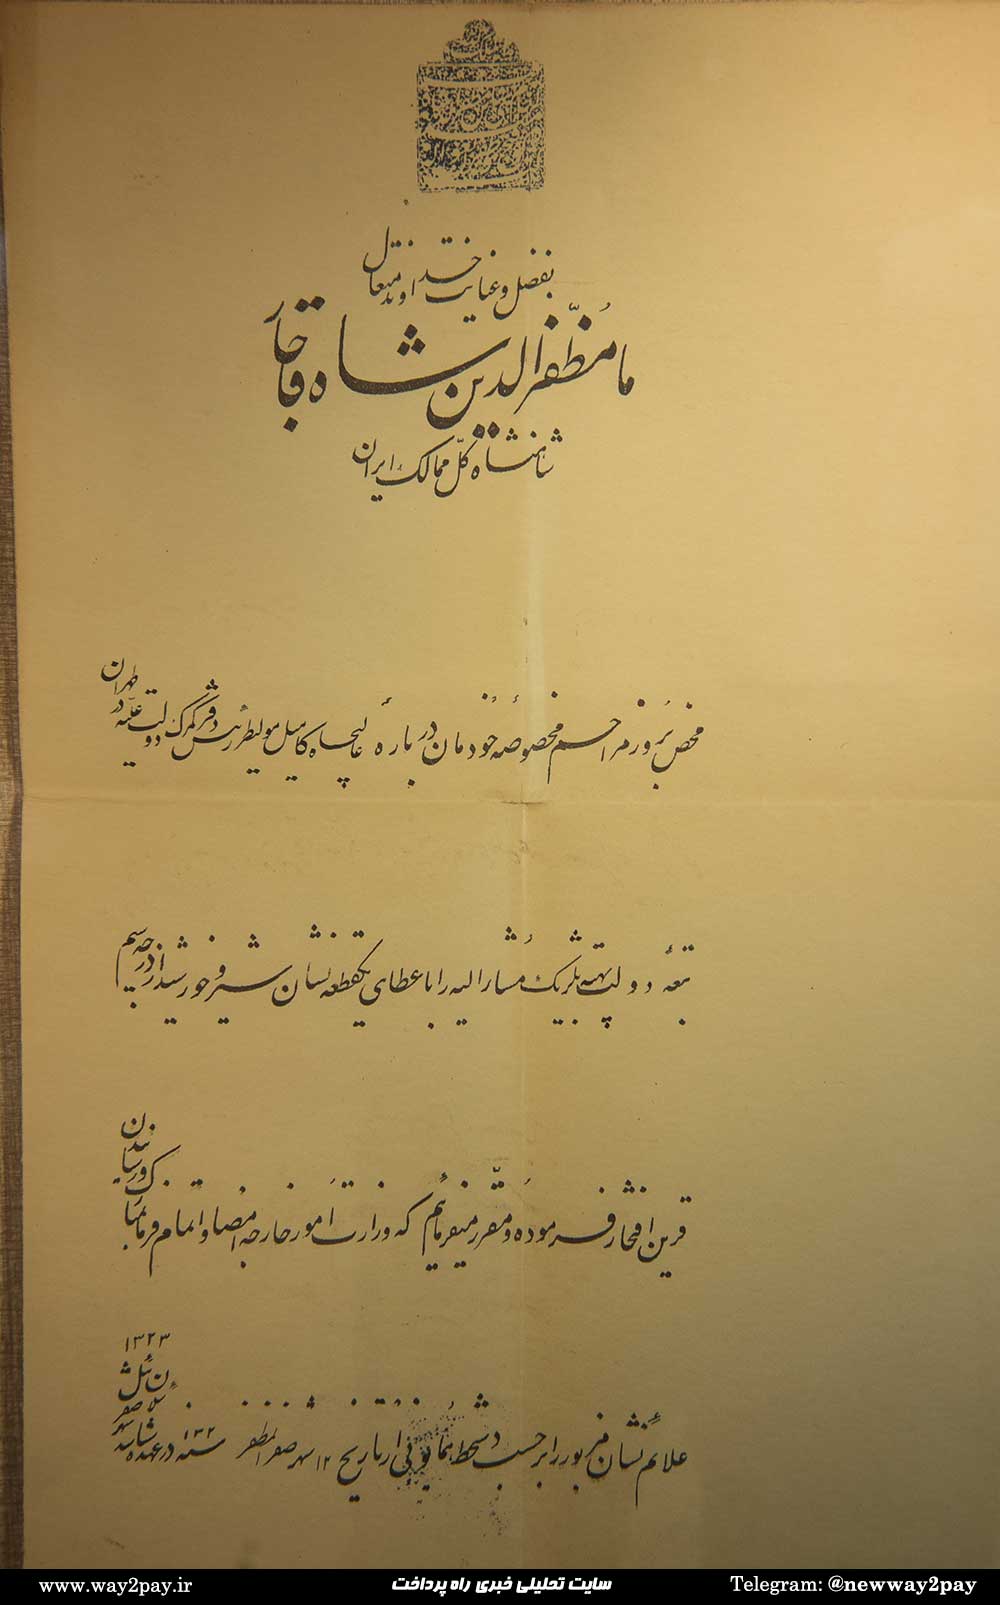 بفضل و عنایت خداوند متعال
ما مظفرالدین شاه قاجار
شاهنشاه کل ممالک ایران
محض بروز مراحم مخصوصه خودمان درباره عالیجاه کامیل مولیطر رئیس دفتر گمرک دولت علیه در طهران
تبعه دولت بهیه بلژیک مشارالیه را با عطای یکقطعه نشان شیر و خورشید از درجه سیم
قرین افتخار فرموده و مقرر میفرمائیم که وزارت امور خارجه امضا و اتمام فرمان مبارک و رسانیدن
علائم نشان مزبور را بر حسب دستخط همایونی از تاریخ ۱۲ شهر صفر المظفر سنه در عهده شناسد
صفر
ئیل
۱۳۲۳
www.way2pay.ir
سایت تحلیلی خبری راه پرداخت
Telegram: @newway2pay